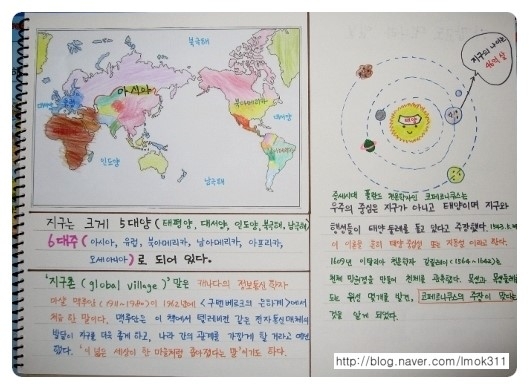 북극해
아시아
유럽
대서양
북아메리카
아프리카
인도양
대서양
남극해
지구는 크게 5대양 (태평양, 대서양, 인도양, 북극해, 남극해)
6대주 (아시아, 유럽, 북아메리카, 남아메리카, 아프리카,
오세아니아)로 되어 있다.
'지구촌 (global village)' 말은 캐나다의 정보통신 학자
마샬 맥루한 (1911~1980)이 1962년에 <구텐베르크 은하계>에서
처음 한 말이다. 맥루한은 이 책에서 텔레비전 같은 전자통신매체의
발달이 지구를 더욱 좁게 하고, 나라 간의 관계를 가깝게 할 거라고 예언
했다. '이 넓은 세상이 한 마을처럼 좁아졌다는 말'이기도 하다.
지구의 나이는
태양
중세시대 폴란드 천문학자인 코페르니쿠스는
우주의 중심은 지구가 아니고 태양이며 지구와
행성들이 태양 둘레를 돌고 있다고 주장했다.
이 이론을 온 태양 중심설 또는 지동설 이라고 한다.
1609년 이탈리아 천문학자 갈릴레이 (1564~1642)는
천체 망원경을 만들어 천체를 관측했다.
되는 위성 몇개를 발견, 코페르니쿠스의 주장이 맞다는
것을 알게 되었다.
http://blog.naver.com/lmok311